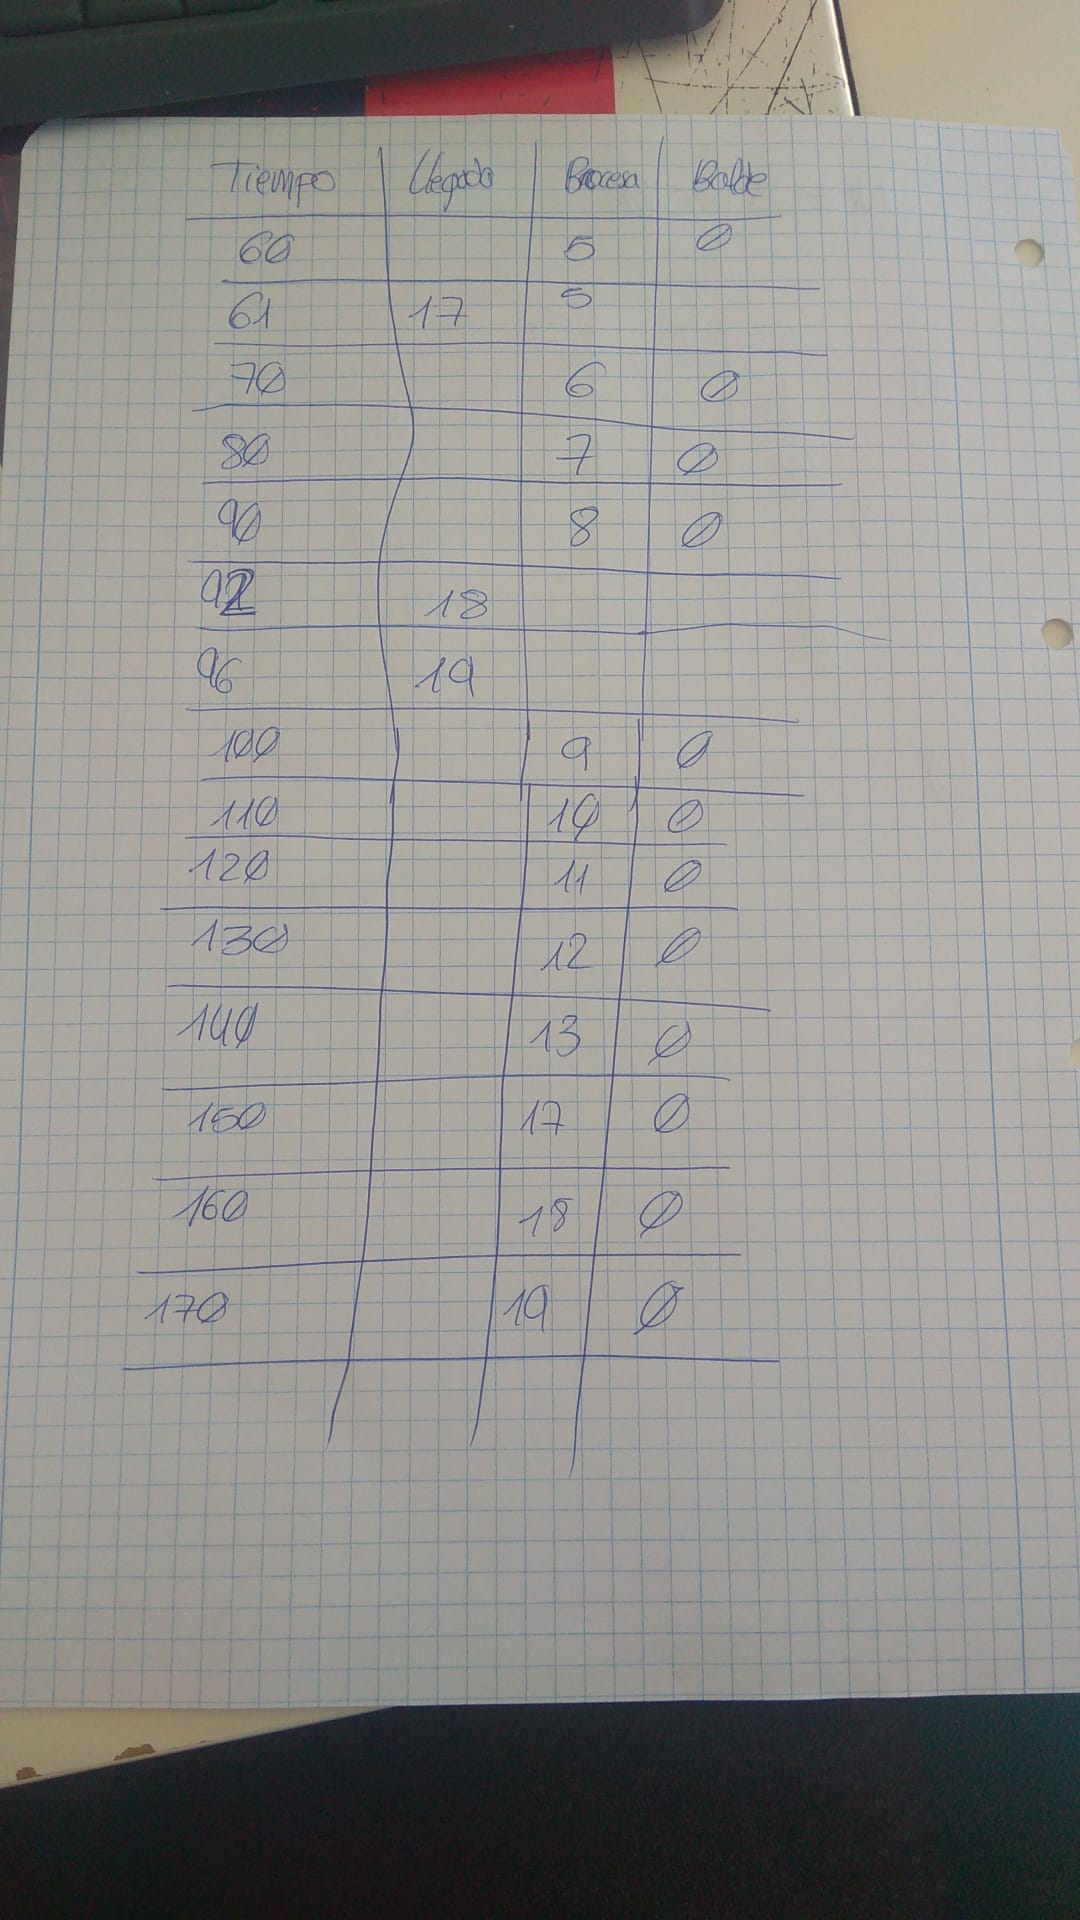 Tiempo Llegada Procesa Balde
60 5 0
61 17 5
70 6 0
80 7 0
90 8 0
92 18
96 19
100 9 0
110 10 0
120 11 0
130 12 0
140 13 0
150 17 0
160 18 0
170 19 0